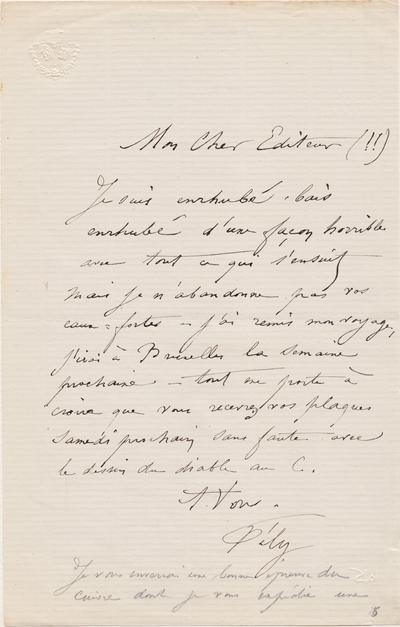 Mon Cher Editeur (!!)
Je suis enrhubé. bais
enrhubé d'une façon horrible
avec tout ce qui s'ensuit
Mais je n'abandonne pas vos
eaux=fortes — j'ai remis mon voyage,
j'irai à Bruxelles la semaine
prochaine — tout me porte à
croire que vous recevrez vos plaques
Samedi prochain sans faute avec
le dessin du diable au C.
A Vous.
Fély
Je vous enverrai une bonne épreuve du
cuivre dont je vous expédie une